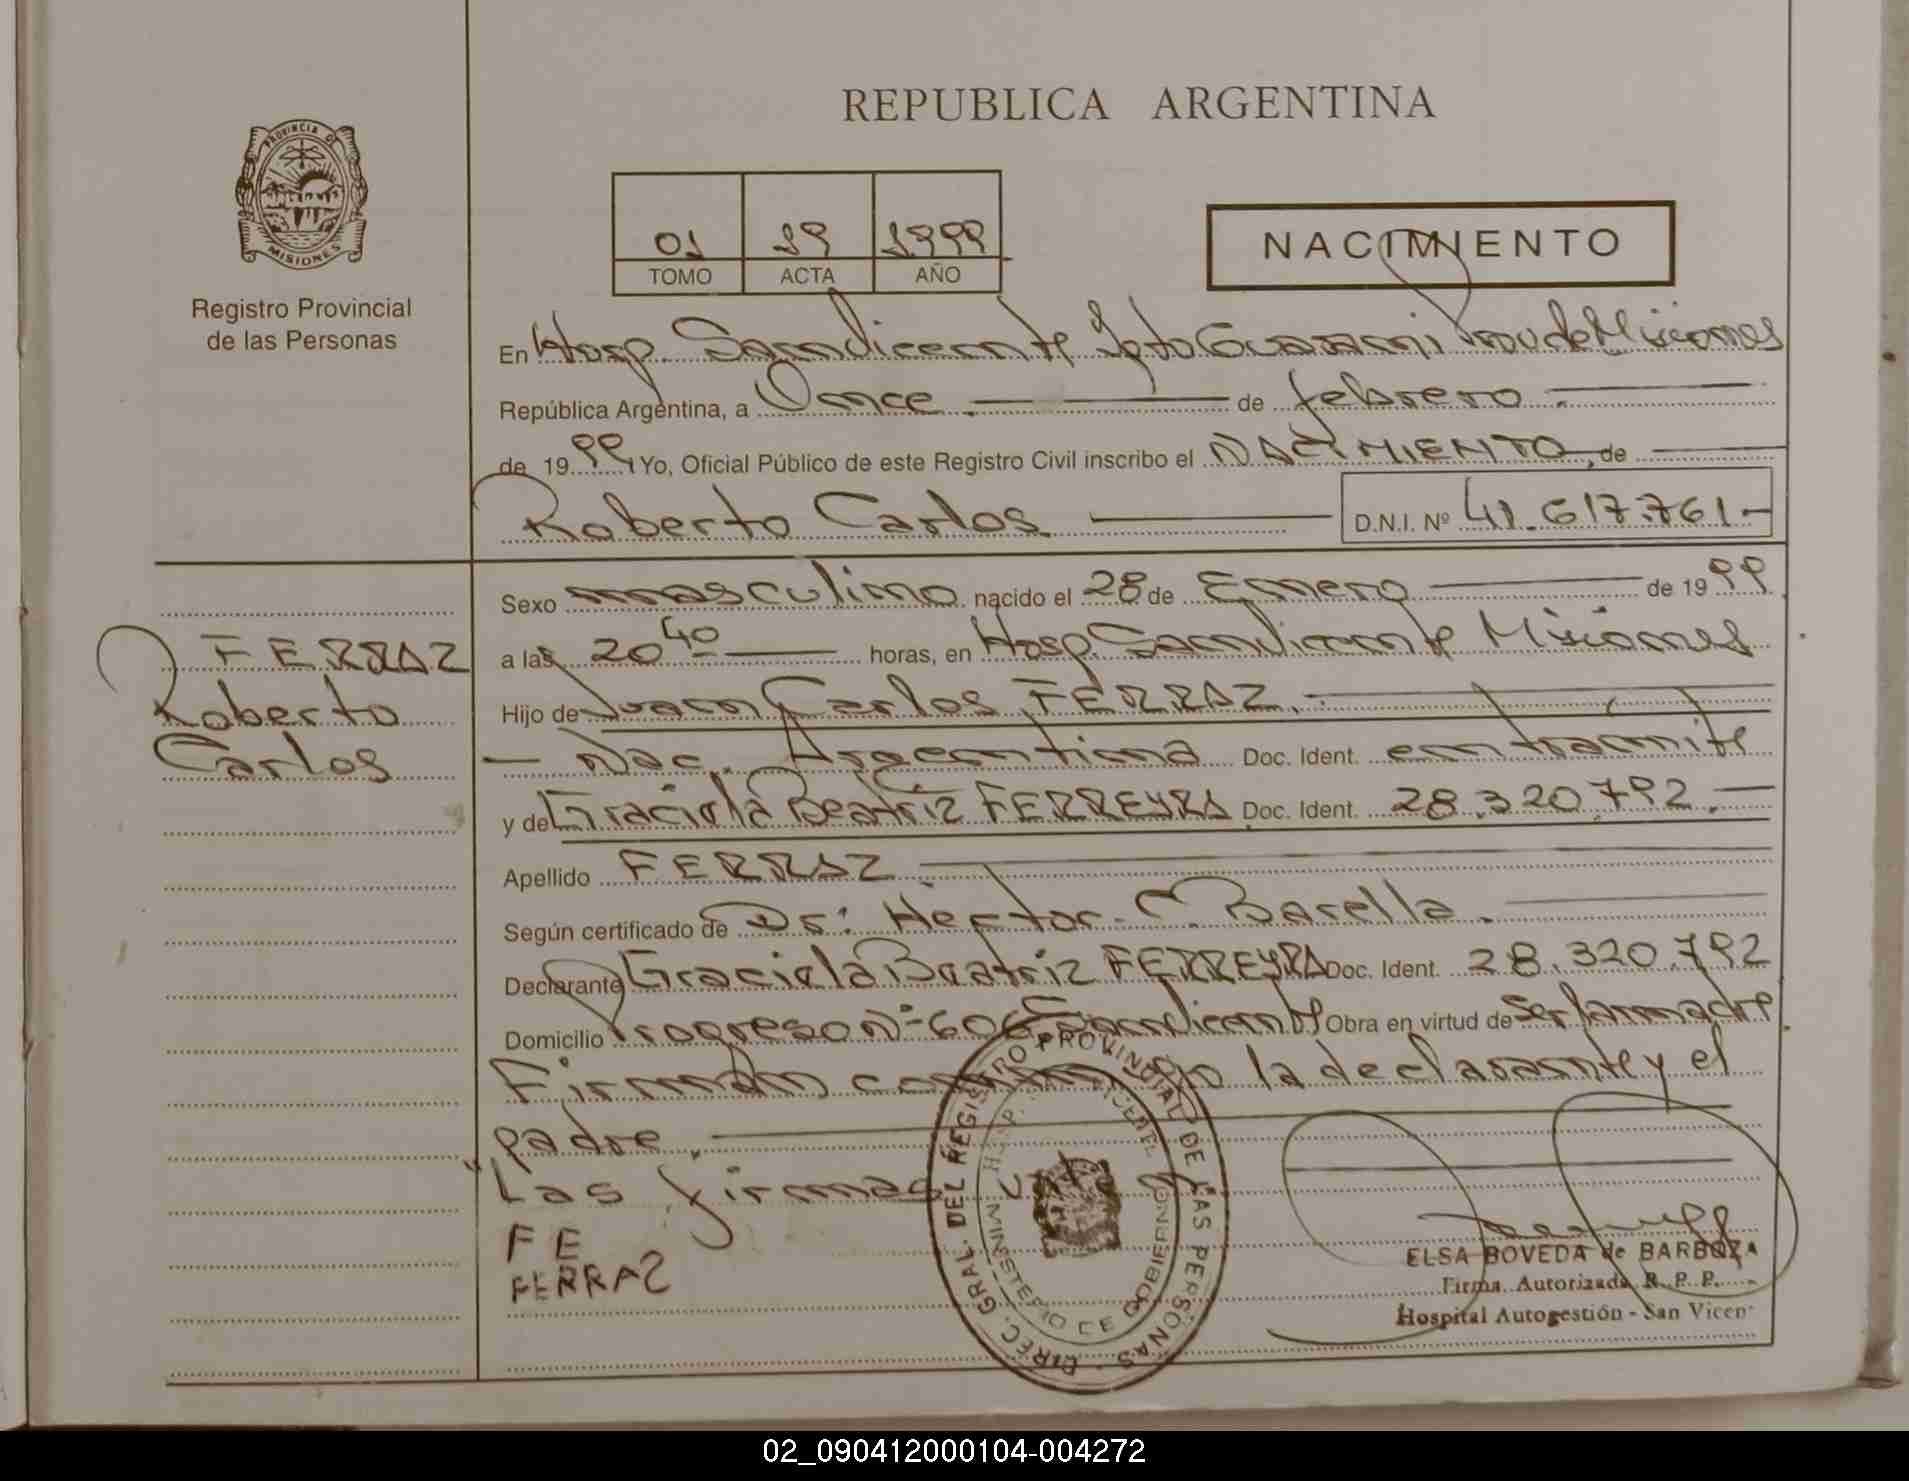 REPUBLICA ARGENTINA
PROVINCIA DE
MISIONES
Registro Provincial
de las Personas
01 19 1999
TOMO ACTA AÑO
NACIMIENTO
En Hosp. San Vicente Dpto Guarani Prov de Misiones
República Argentina, a Once de febrero
de 1999 Yo, Oficial Público de este Registro Civil inscribo el NACIMIENTO, de
Roberto Carlos D.N.I. Nº 41.617.761-
Sexo masculino nacido el 28 de Enero de 1999
FERRAZ
Roberto
Carlos
a las 20 40 horas, en Hosp. San Vicente Misiones
Hijo de Juan Carlos FERRAZ.
Nac. Argentina Doc. Ident. en tramite
y de Graciela Beatriz FERREYRA Doc. Ident. 28.320.792.
Apellido FERRAZ
Según certificado de Dr: Hector C. Barella.
Declarante Graciela Beatriz FERREYRA Doc. Ident. 28.320.792
Domicilio Progreso Nº 606 San Vicente Obra en virtud de ser la madre
Firman conmigo la declarante y el
padre.
"Las firmas
FE
FERRAZ
DIREC. GRAL. DEL REGISTRO PROVINCIAL DE LAS PERSONAS
MINISTERIO DE GOBIERNO
ELSA BOVEDA de BARBOZA
Firma Autorizada R. P. P.
Hospital Autogestión - San Vicen
02_090412000104-004272